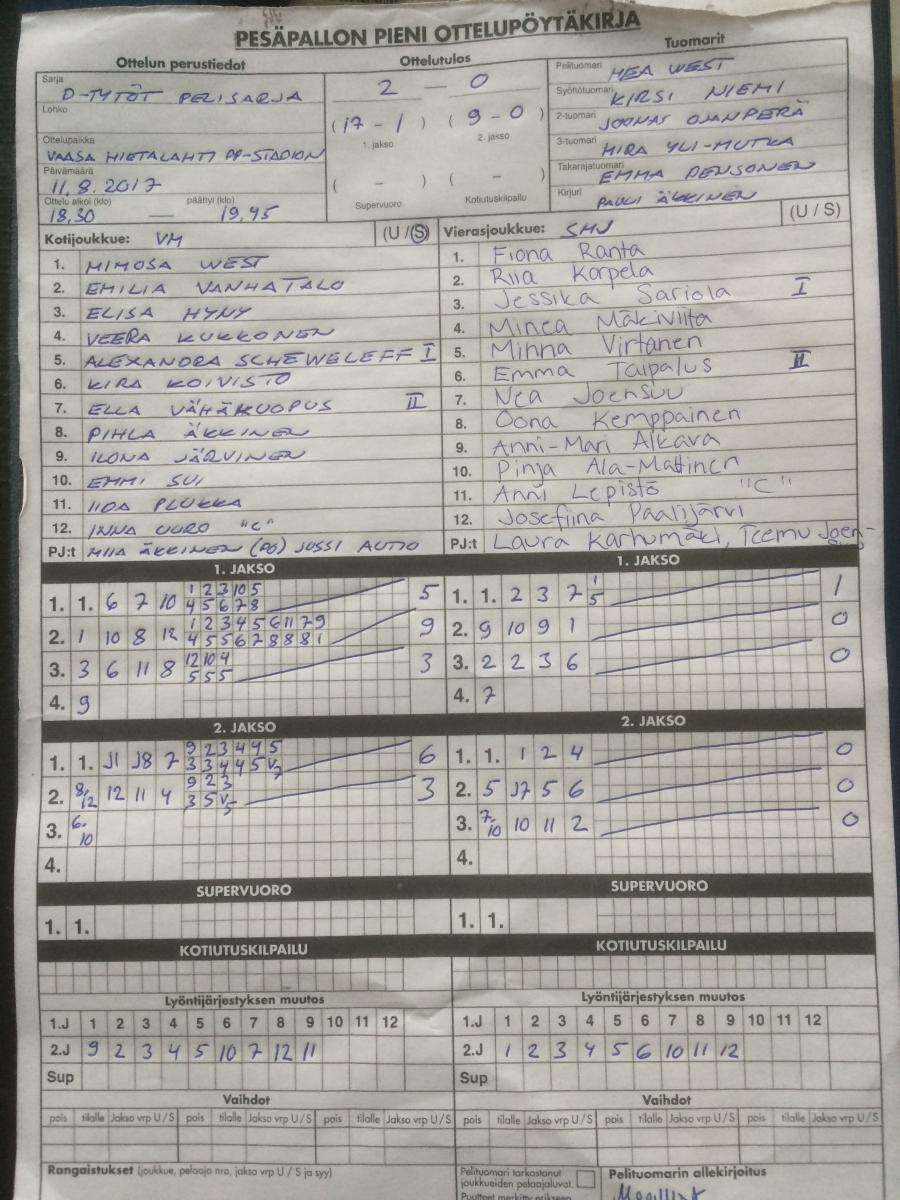 PESÄPALLON PIENI OTTELUPÖYTÄKIRJA
Ottelun perustiedot
Sarja
D-TYTÖT PELISARJA
Lohko
Ottelupaikka
VAASA HIETALAHTI PP-STADION
Päivämäärä
11.8.2017
Ottelu alkoi (klo) päättyi (klo)
18,30 — 19,45
Ottelutulos
2 — 0
(17 - 1) (9 - 0)
1. jakso 2. jakso
( - ) ( - )
Supervuoro Kotiutuskilpailu
Tuomarit
Pelituomari MEA WEST
Syöttötuomari KIRSI NIEMI
2-tuomari JOONAS OJANPERÄ
3-tuomari MIRA YLI-MUTKA
Takarajatuomari EMMA PENSONEN
Kirjuri PAULI ÄKKINEN
Kotijoukkue: VM (U / S)
1. MIMOSA WEST
2. EMILIA VANHATALO
3. ELISA HYNY
4. VEERA KUKKONEN
5. ALEXANDRA SCHEWELEFF I
6. KIRA KOIVISTO
7. ELLA VÄHÄKUOPUS II
8. PIHLA ÄKKINEN
9. ILONA JÄRVINEN
10. EMMI SUI
11. IIDA PLUKKA
12. INNA UURO "C"
PJ:t MIIA ÄKKINEN (PO) JUSSI AUTIO
Vierasjoukkue: SMJ (U / S)
1. Fiona Ranta
2. Riia Korpela
3. Jessika Sariola I
4. Minea Mäkiviita
5. Minna Virtanen
6. Emma Taipalus II
7. Nea Joensuu
8. Oona Kemppainen
9. Anni-Mari Alkava
10. Pinja Ala-Mattinen
11. Anni Lepistö "C"
12. Josefiina Paalijärvi
PJ:t Laura Karhumäki, Teemu Joen-
1. JAKSO
1. 1. 6 7 10 1 2 3 10 5 5
4 5 6 7 8
2. 1 10 8 12 1 2 3 4 5 6 11 7 9 9
4 5 5 6 7 8 8 8 1
3. 3 6 11 8 12 10 4 3
5 5 5
4. 9
1. JAKSO
1. 1. 2 3 7 1 1
5
2. 9 10 9 1 0
3. 2 2 3 6 0
4. 7
2. JAKSO
1. 1. J1 J8 7 9 2 3 4 4 5 6
3 3 4 4 5 V7
2. 8/12 12 11 4 9 2 3 3
3 5 V5
3. 6. 10
4.
2. JAKSO
1. 1. 1 2 4 0
2. 5 J7 5 6 0
3. 7. 10 10 11 2 0
4.
SUPERVUORO
1. 1.
SUPERVUORO
1. 1.
KOTIUTUSKILPAILU
KOTIUTUSKILPAILU
Lyöntijärjestyksen muutos
1.J 1 2 3 4 5 6 7 8 9 10 11 12
2.J 9 2 3 4 5 10 7 12 11
Sup
Lyöntijärjestyksen muutos
1.J 1 2 3 4 5 6 7 8 9 10 11 12
2.J 1 2 3 4 5 6 10 11 12
Sup
Vaihdot
pois tilalle Jakso vrp U / S pois tilalle Jakso vrp U / S pois tilalle Jakso vrp U / S
Vaihdot
pois tilalle Jakso vrp U / S pois tilalle Jakso vrp U / S pois tilalle Jakso vrp U / S
Rangaistukset (joukkue, pelaaja nro, jakso vrp U / S ja syy)
Pelituomari tarkastanut
joukkueiden pelaajaluvat.
Puutteet merkitty erikseen
Pelituomarin allekirjoitus